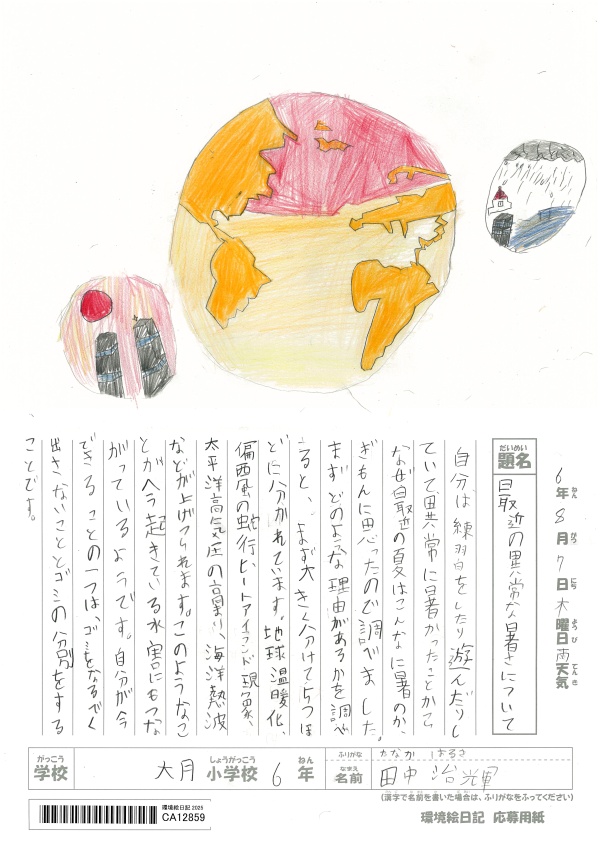 6年8月7日木曜日雨天気
ねん がつ にち ようび てんき
だいめい
題名
最近の異常な暑さについて
自分は練習をしたり遊んだりし
ていて異常に暑かったことから
なぜ最近の夏はこんなに暑のか、
ぎもんに思ったので調べました。
まずどのような理由があるかを調べ
ると、まず大きく分けて5つほ
どに分かれています。地球温暖化、
偏西風の蛇行、ヒートアイランド現象、
太平洋高気圧の高まり、海洋熱波
などが上げられます。このようなこ
とが今起きている水害にもつな
がっているようです。自分が今
できることの一つは、ゴミをなるべく
出さないこととゴミの分別をする
ことです。
がっこう しょうがっこう ねん
学校 大月 小学校 6 年
ふりがな たなか はるき
なまえ
名前 田中 治輝
(漢字で名前を書いた場合は、ふりがなをふってください)
環境絵日記 2025
CA12859
環境絵日記 応募用紙